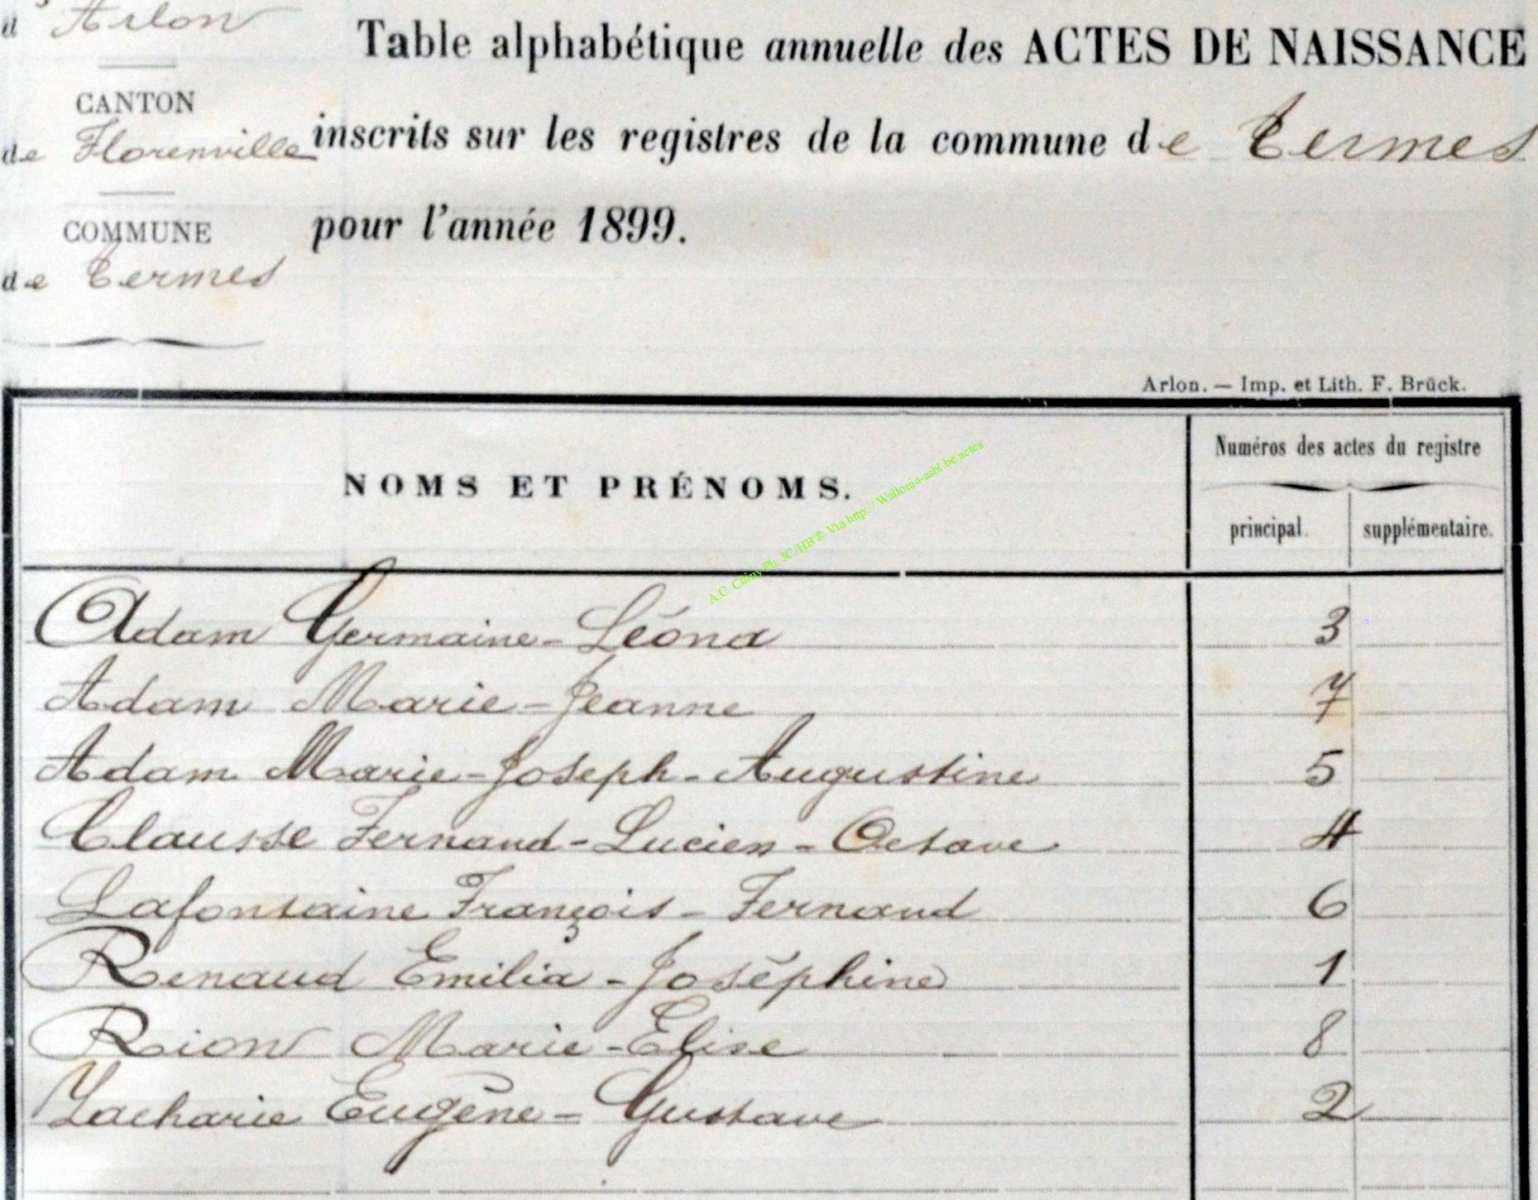 d' Arlon
CANTON
de Florenville
COMMUNE
de Termes
Table alphabétique annuelle des ACTES DE NAISSANCE
inscrits sur les registres de la commune de Termes
pour l'année 1899.
Arlon. — Imp. et Lith. F. Brück.
NOMS ET PRÉNOMS.
Numéros des actes du registre
principal. supplémentaire.
Adam Germaine-Léona 3
Adam Marie-Jeanne 7
Adam Marie-Joseph-Augustine 5
Clausse Fernand-Lucien-Octave 4
Lafontaine François-Fernand 6
Renaud Emilia-Joséphine 1
Rion Marie-Elise 8
Zacharie Eugêne-Gustave 2